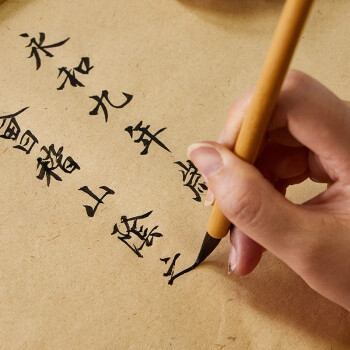 永和九年歲
會稽山陰